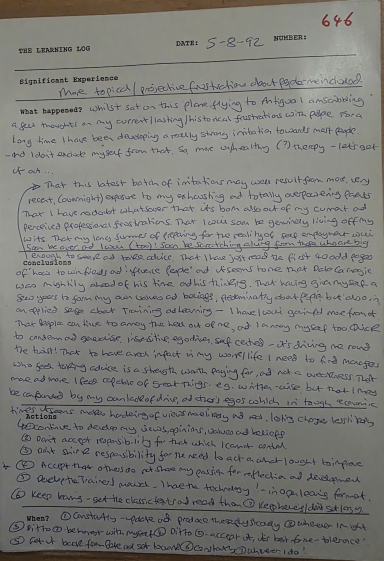 646
THE LEARNING LOG DATE: 5-8-92 NUMBER:
Significant Experience
More topical/projective frustrations about people - me included
What happened? Whilst sat on this plane flying to Antigua I am scribbling
a few thoughts on my current/lasting/historical frustrations with people. For a
long time I have been developing a really strong irritation towards most people
- and I don't exclude myself from that. So, more unhealthy (?) therapy - let's get
it out...
That this latest batch of irritations may well result from more, very
recent, (overnight) exposure to my exhausting and totally overpowering parents
That I have no doubt whatsoever that it's born also out of my current and
perceived professional frustrations. That I will soon be genuinely living off my
wits. That my long summer of preparing for the reality of self employment will
soon be over, and I will (too) soon be scratching a living from those who are big
enough to seek and take advice. That I have just read the first 40 odd pages
Conclusions
of 'how to win friends and influence people' and it seems to me that Dale Carnegie
was mightily ahead of his time in his thinking. That having given myself a
few years to form my own values and beliefs, predominantly about people but also in
an applied sense about Training and learning - I have lost
That people continue to annoy the hell out of me, and I annoy myself too. Quick
to condemn and generalise, insensitive, egodriven, self centred - it's driving me round
the twist! That to have a real impact in my work/life I need to find managers
who feel taking advice is a strength worth paying for, and not a weakness. That
more and more I feel capable of great things e.g. written - but that I may
be confounded by my own lack of drive, and others egos which in tough economic
times it seems makes hardening of views more likely and not, listing changes less likely
Actions
① Continue to develop my views, opinions, values and beliefs
② Don't accept responsibility for that which I cannot control
③ Don't shirk responsibility for the need to act on what I ought to improve
④ Accept that others do not share my passion for reflection and development
⑤ Develop the Trainers manual - I have the technology! - in open learning format.
⑥ Keep being - get the classic texts and read them ⑦ Keep
When? ① Constantly - update and produce ② whenever in sight
③ Ditto ④ be honest with myself ⑤ Ditto - accept it, its best - tolerance'
⑥ Get book ⑦ Constantly whenever I do!